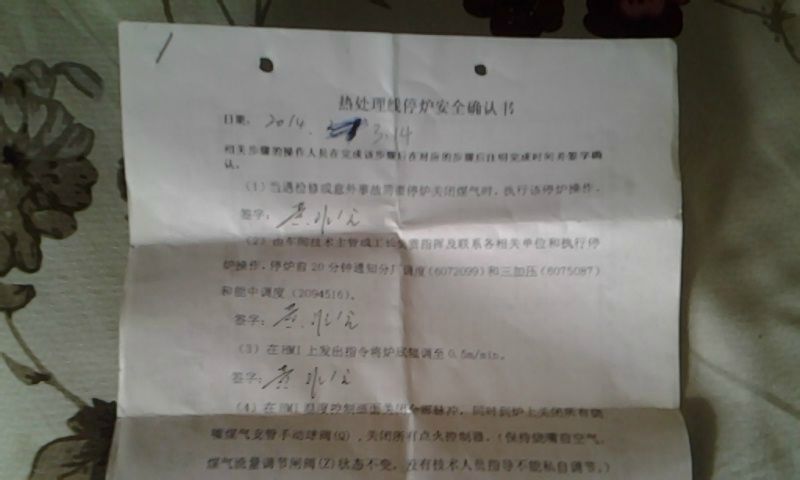 1
热处理线停炉安全确认书
日期: 2014. 3.14
相关步骤的操作人员在完成该步骤后在对应的步骤后注明完成时间并签字确
认。
(1)当遇检修或意外事故需要停炉关闭煤气时,执行该停炉操作。
签字: 黄
(2)由车间技术主管或工长负责指挥及联系各相关单位和执行停
炉操作。停炉前20分钟通知分厂调度(6072099)和三加压(6075087)
和能中调度(2094516)。
签字: 黄
(3)在HMI上发出指令将炉底辊调至0.5m/min。
签字: 黄
(4)在HMI温度控制画面关闭全部脉冲,同时到炉上关闭所有烧
嘴煤气支管手动球阀(Q),关闭所有点火控制器。(保持烧嘴前空气、
煤气流量调节闸阀(Z)状态不变,没有技术人员指导不能私自调节。)